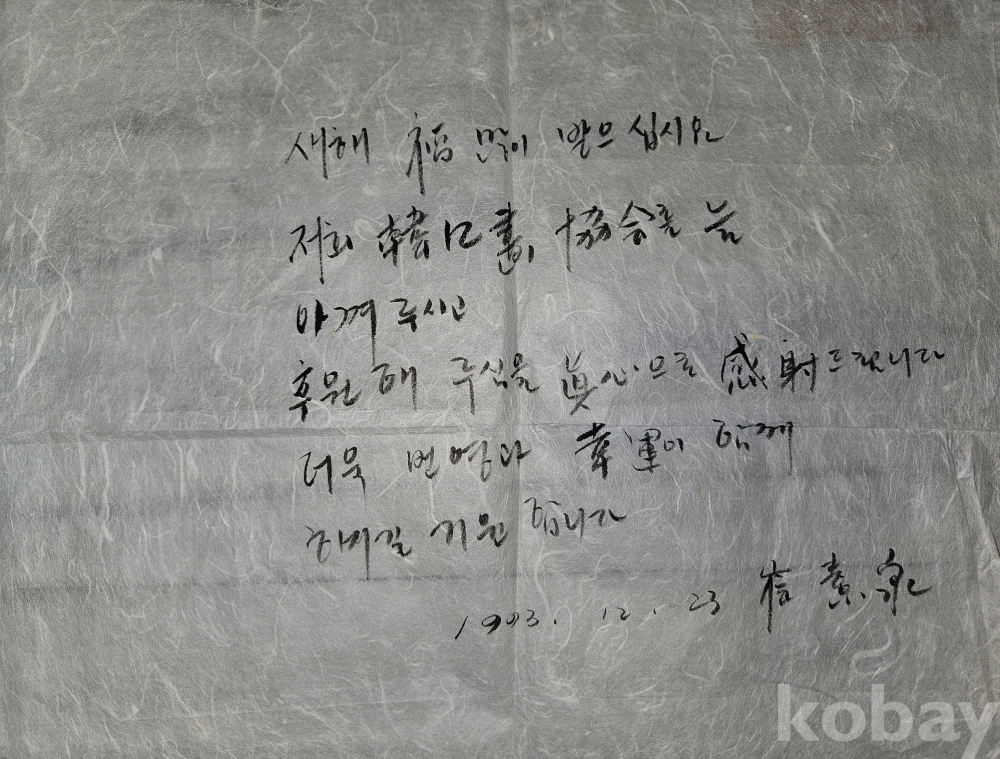 새해 福 많이 받으십시요
저희 韓口畵 協會를 늘
아껴 주시고
후원해 주심을 眞心으로 感射드립니다
더욱 번영과 幸運이 함께
하시길 기원합니다
1993. 12. 23
kobay